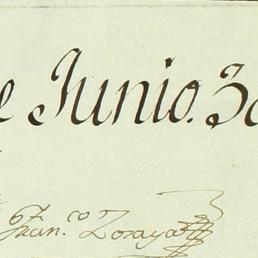 e Junio. 30
Fran.co Zoraya